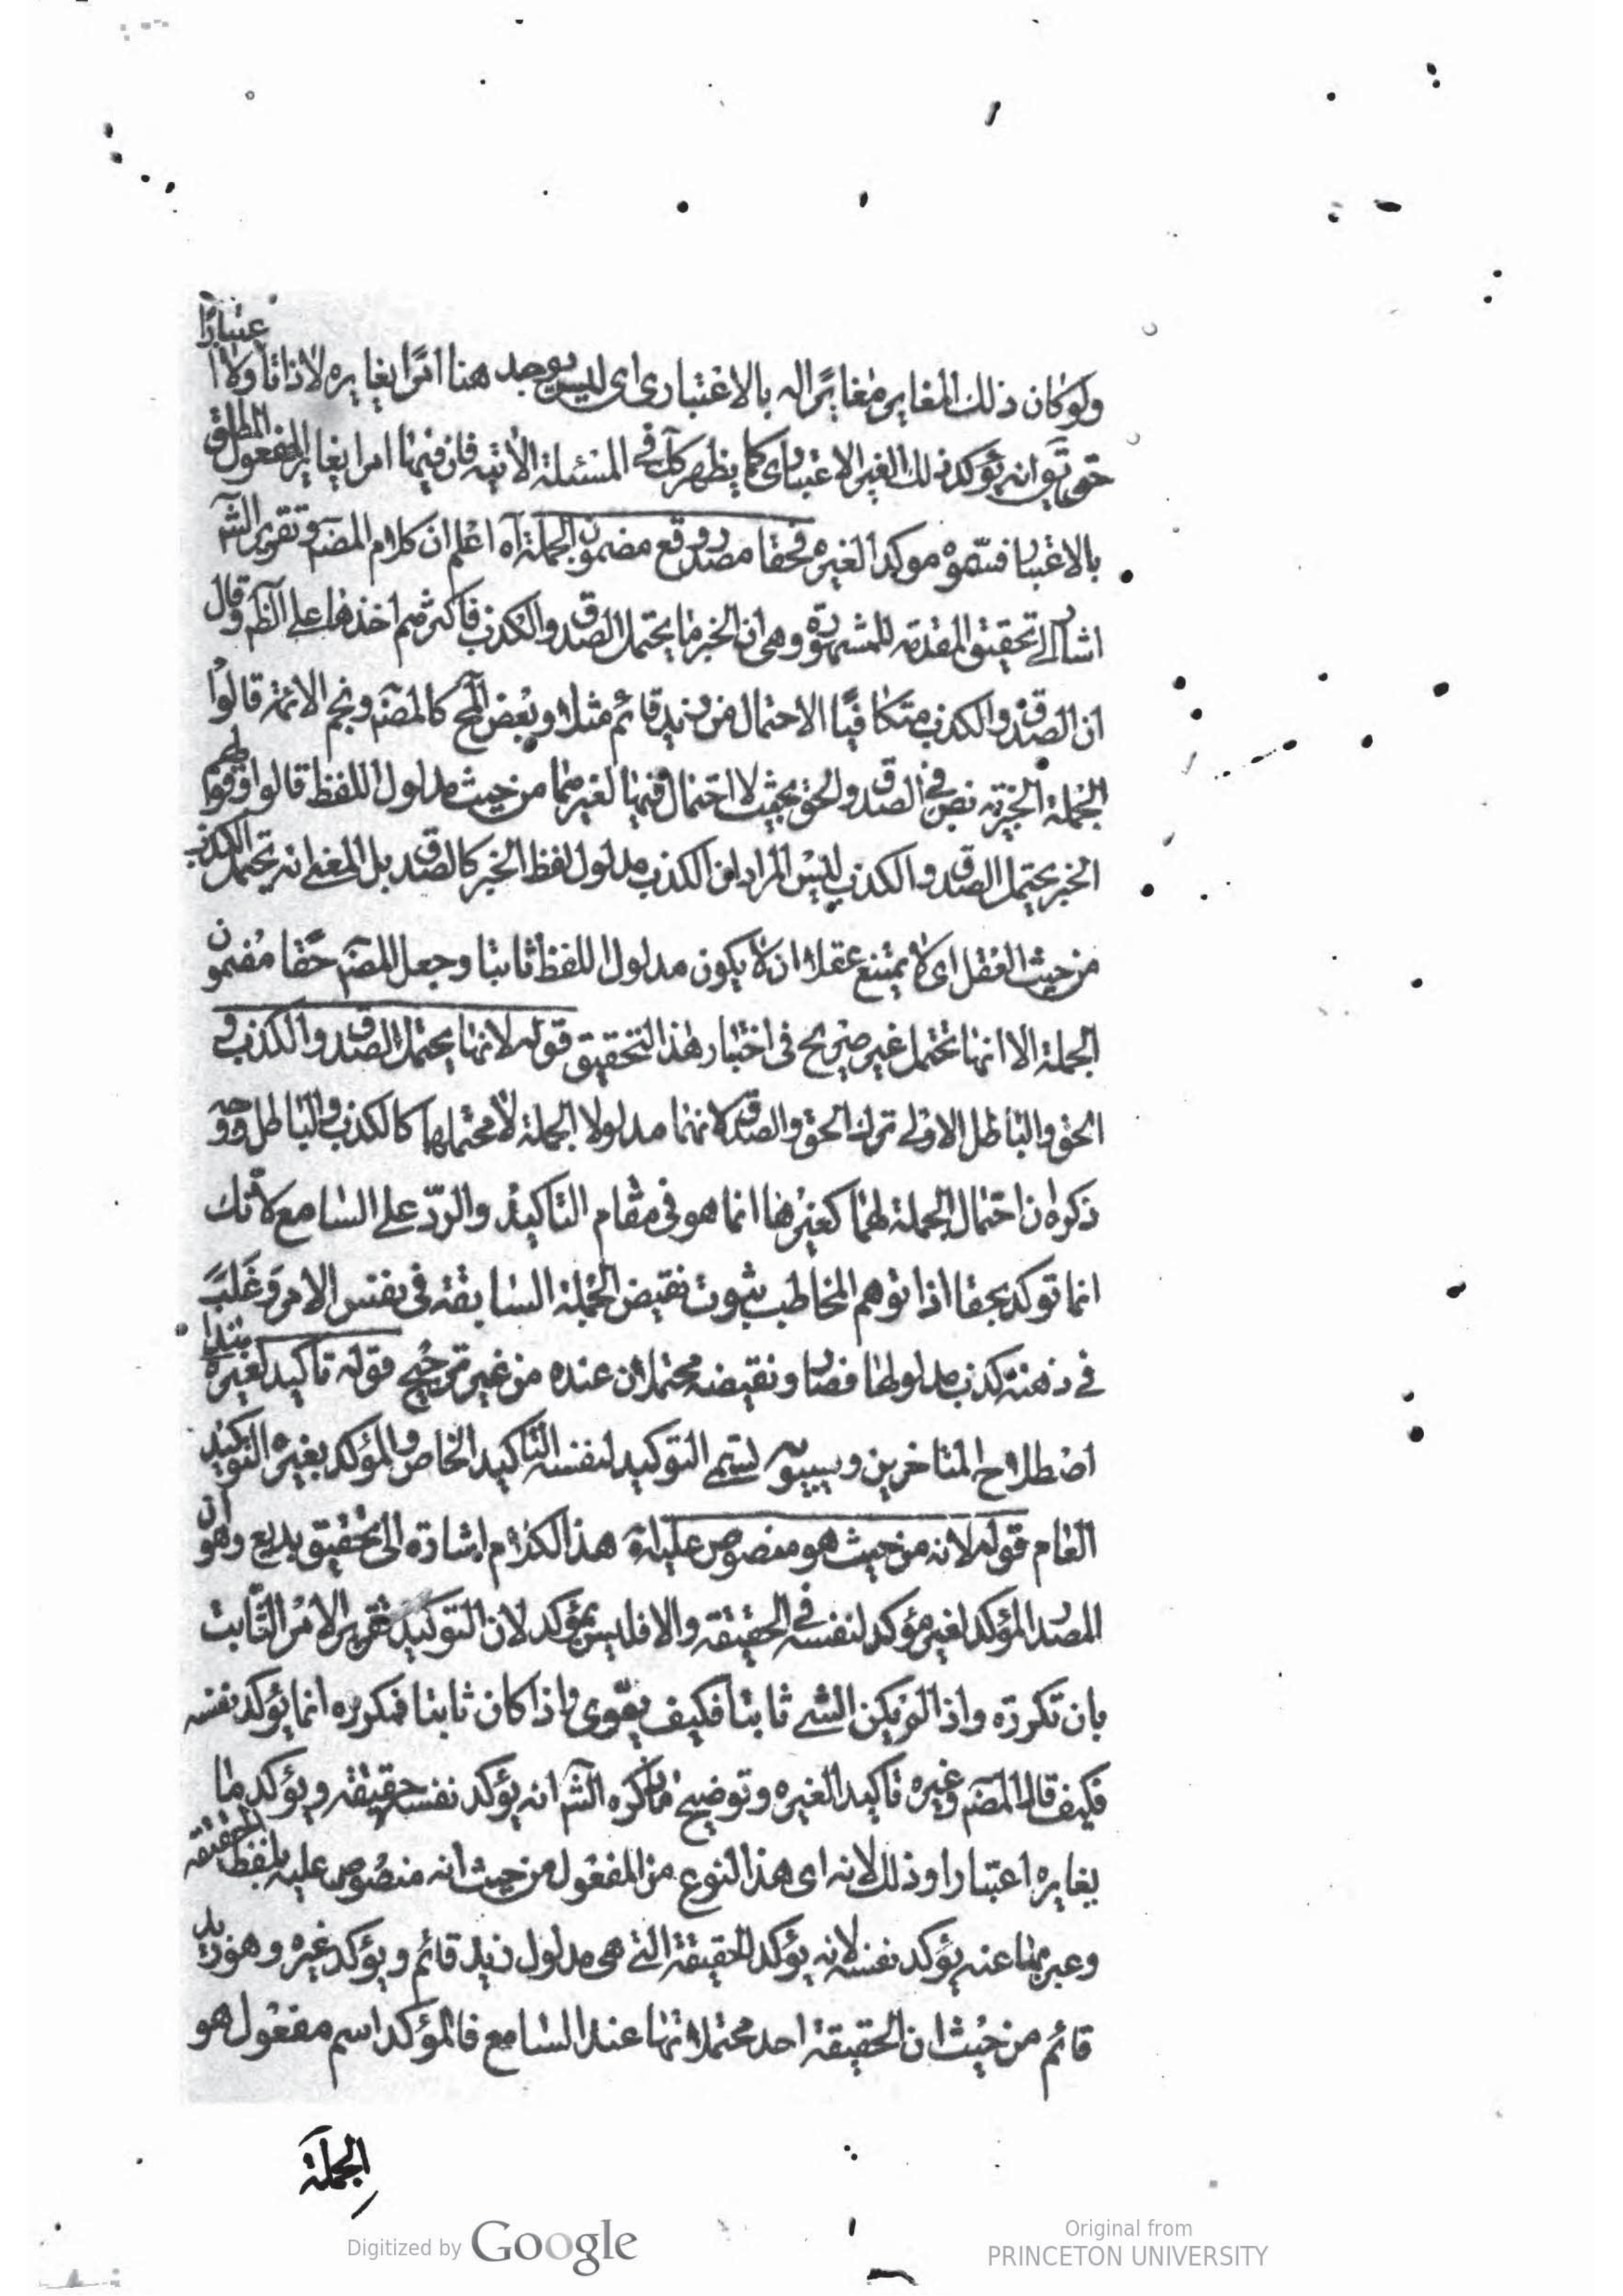 ولو كان ذلك المغاير مغايرًا له بالاعتبار اى ليس يوجد هنا امرًا يغايره لا ذاتا ولا اعتبارًا
حتى يق انه يؤكد ذلك الغير الاعتبارى كما يظهر لك فى المسئلة الاتيه فان فيها امرا يغاير المفعول المطلق
بالاعتبار فسموه موكدا لغيره فحقا مصدر وقع مضمون الجملة آه اعلم ان كلام المصنم وتقرير الشم
اشارة الى تحقيق المقدمه المشهورة وهى ان الخبر ما يحتمل الصدق والكذب فاكثرهم اخذها على الظم وقال
ان الصدق والكذب متكافيا الاحتمال من زيد قائم مثلا وبعض المح كالمصنم ونجم الائمة قالوا
الجملة الخبرية نص فى الصدق والحق بحيث لا احتمال فيها لغيرهما من حيث مدلول اللفظ قالوا وقولهم
الخبر يحتمل الصدق والكذب ليس المراد ان الكذب مدلول لفظ الخبر كالصدق بل المعنى انه يحتمل الكذب
من حيث العقل اى لا يمتنع عقلا ان لا يكون مدلول اللفظ ثابتا وجعل المصنم حقا مضمون
الجملة الا انها تحتمل غير صريح فى اختيار هذا التحقيق قوله لانها يحتمل الصدق والكذب و
الحق والباطل الاولى ترك الحق والصدق لانهما مدلولا الجملة لا محتملها كالكذب والباطل ووجه
ذكره ان احتمال الجملة لهما كغيرها انما هو فى مقام التاكيد والردّ على السامع لانك
انما توكد بحقا اذا توهم المخاطب ثبوت نقيض الجملة السابقة فى نفس الامر وغلب
فى ذهنه كذب مدلولها فصار ونقيضه محتملان عنده من غير ترجيح قوله تاكيد لغيره هذا
اصطلاح المتاخرين وسيبويه يسمى التوكيد لنفسه التاكيد الخاص والمؤكد بغيره التوكيد
العام قوله لانه من حيث هو منصوص عليه آه هذا الكلام اشارة الى تحقيق بديع وهو ان
المصدر المؤكد لغيره مؤكد لنفسه فى الحقيقه والا فليس بمؤكد لان التوكيد تقرير الامر الثابت
بان تكرره واذا لم يكن الشئ ثابتا فكيف يقوى واذا كان ثابتا فمكرره انما يؤكد نفسه
فكيف قال المصنم وغيره تاكيدا لغيره وتوضيح ما ذكره الشم انه يؤكد نفسه حقيقه ويؤكد ما
يغايره اعتبارا وذلك لانه اى هذا النوع من المفعول من حيث انه منصوص عليه بلفظ الحقيقه
وعبر بها عنه يؤكد نفسه لانه يؤكد الحقيقة التى هى مدلول زيد قائم ويؤكد غيره وهو زيد
قائم من حيث ان الحقيقة احد محتملاتها عند السامع فالمؤكد اسم مفعول هو
الجملة
Digitized by Google
Original from
PRINCETON UNIVERSITY